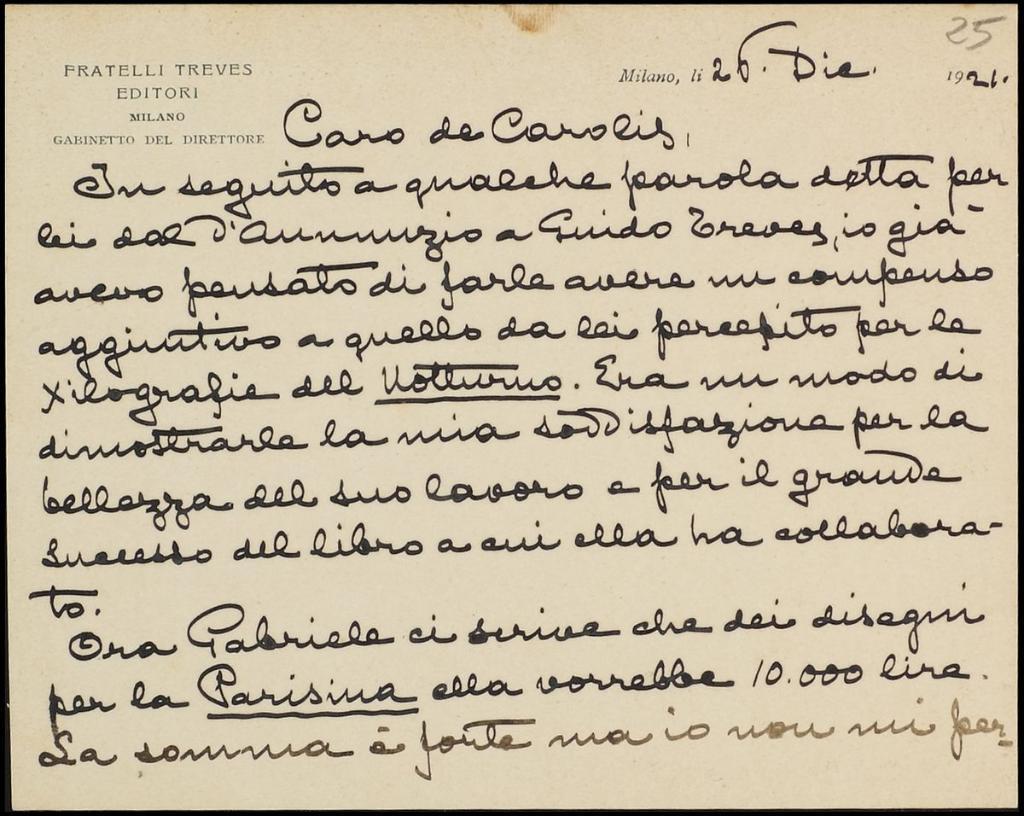 25
FRATELLI TREVES
EDITORI
MILANO
GABINETTO DEL DIRETTORE
Milano, li 26. Dic. 1921.
Caro de Carolis,
In seguito a qualche parola detta per
lei dal D'Annunzio a Guido Treves, io già
avevo pensato di farle avere un compenso
aggiuntivo a quello da lei percepito per le
xilografie del Notturno. Era un modo di
dimostrarle la mia soddisfazione per la
bellezza del suo lavoro e per il grande
successo del libro a cui ella ha collabora-
to.
Ora Gabriele ci scrive che dei disegni
per la Parisina ella vorrebbe 10.000 lire.
La somma è forte ma io non mi per-